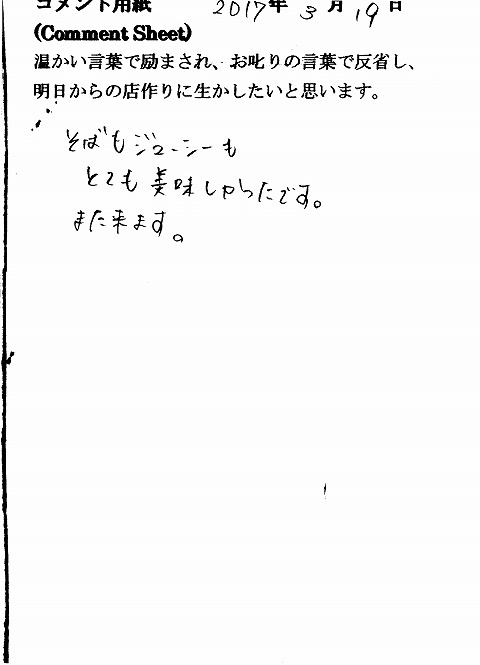 コメント用紙 2017年 3月 19日
(Comment Sheet)
温かい言葉で励まされ、お叱りの言葉で反省し、
明日からの店作りに生かしたいと思います。
そばもジューシーも
とても美味しかったです。
また来ます。